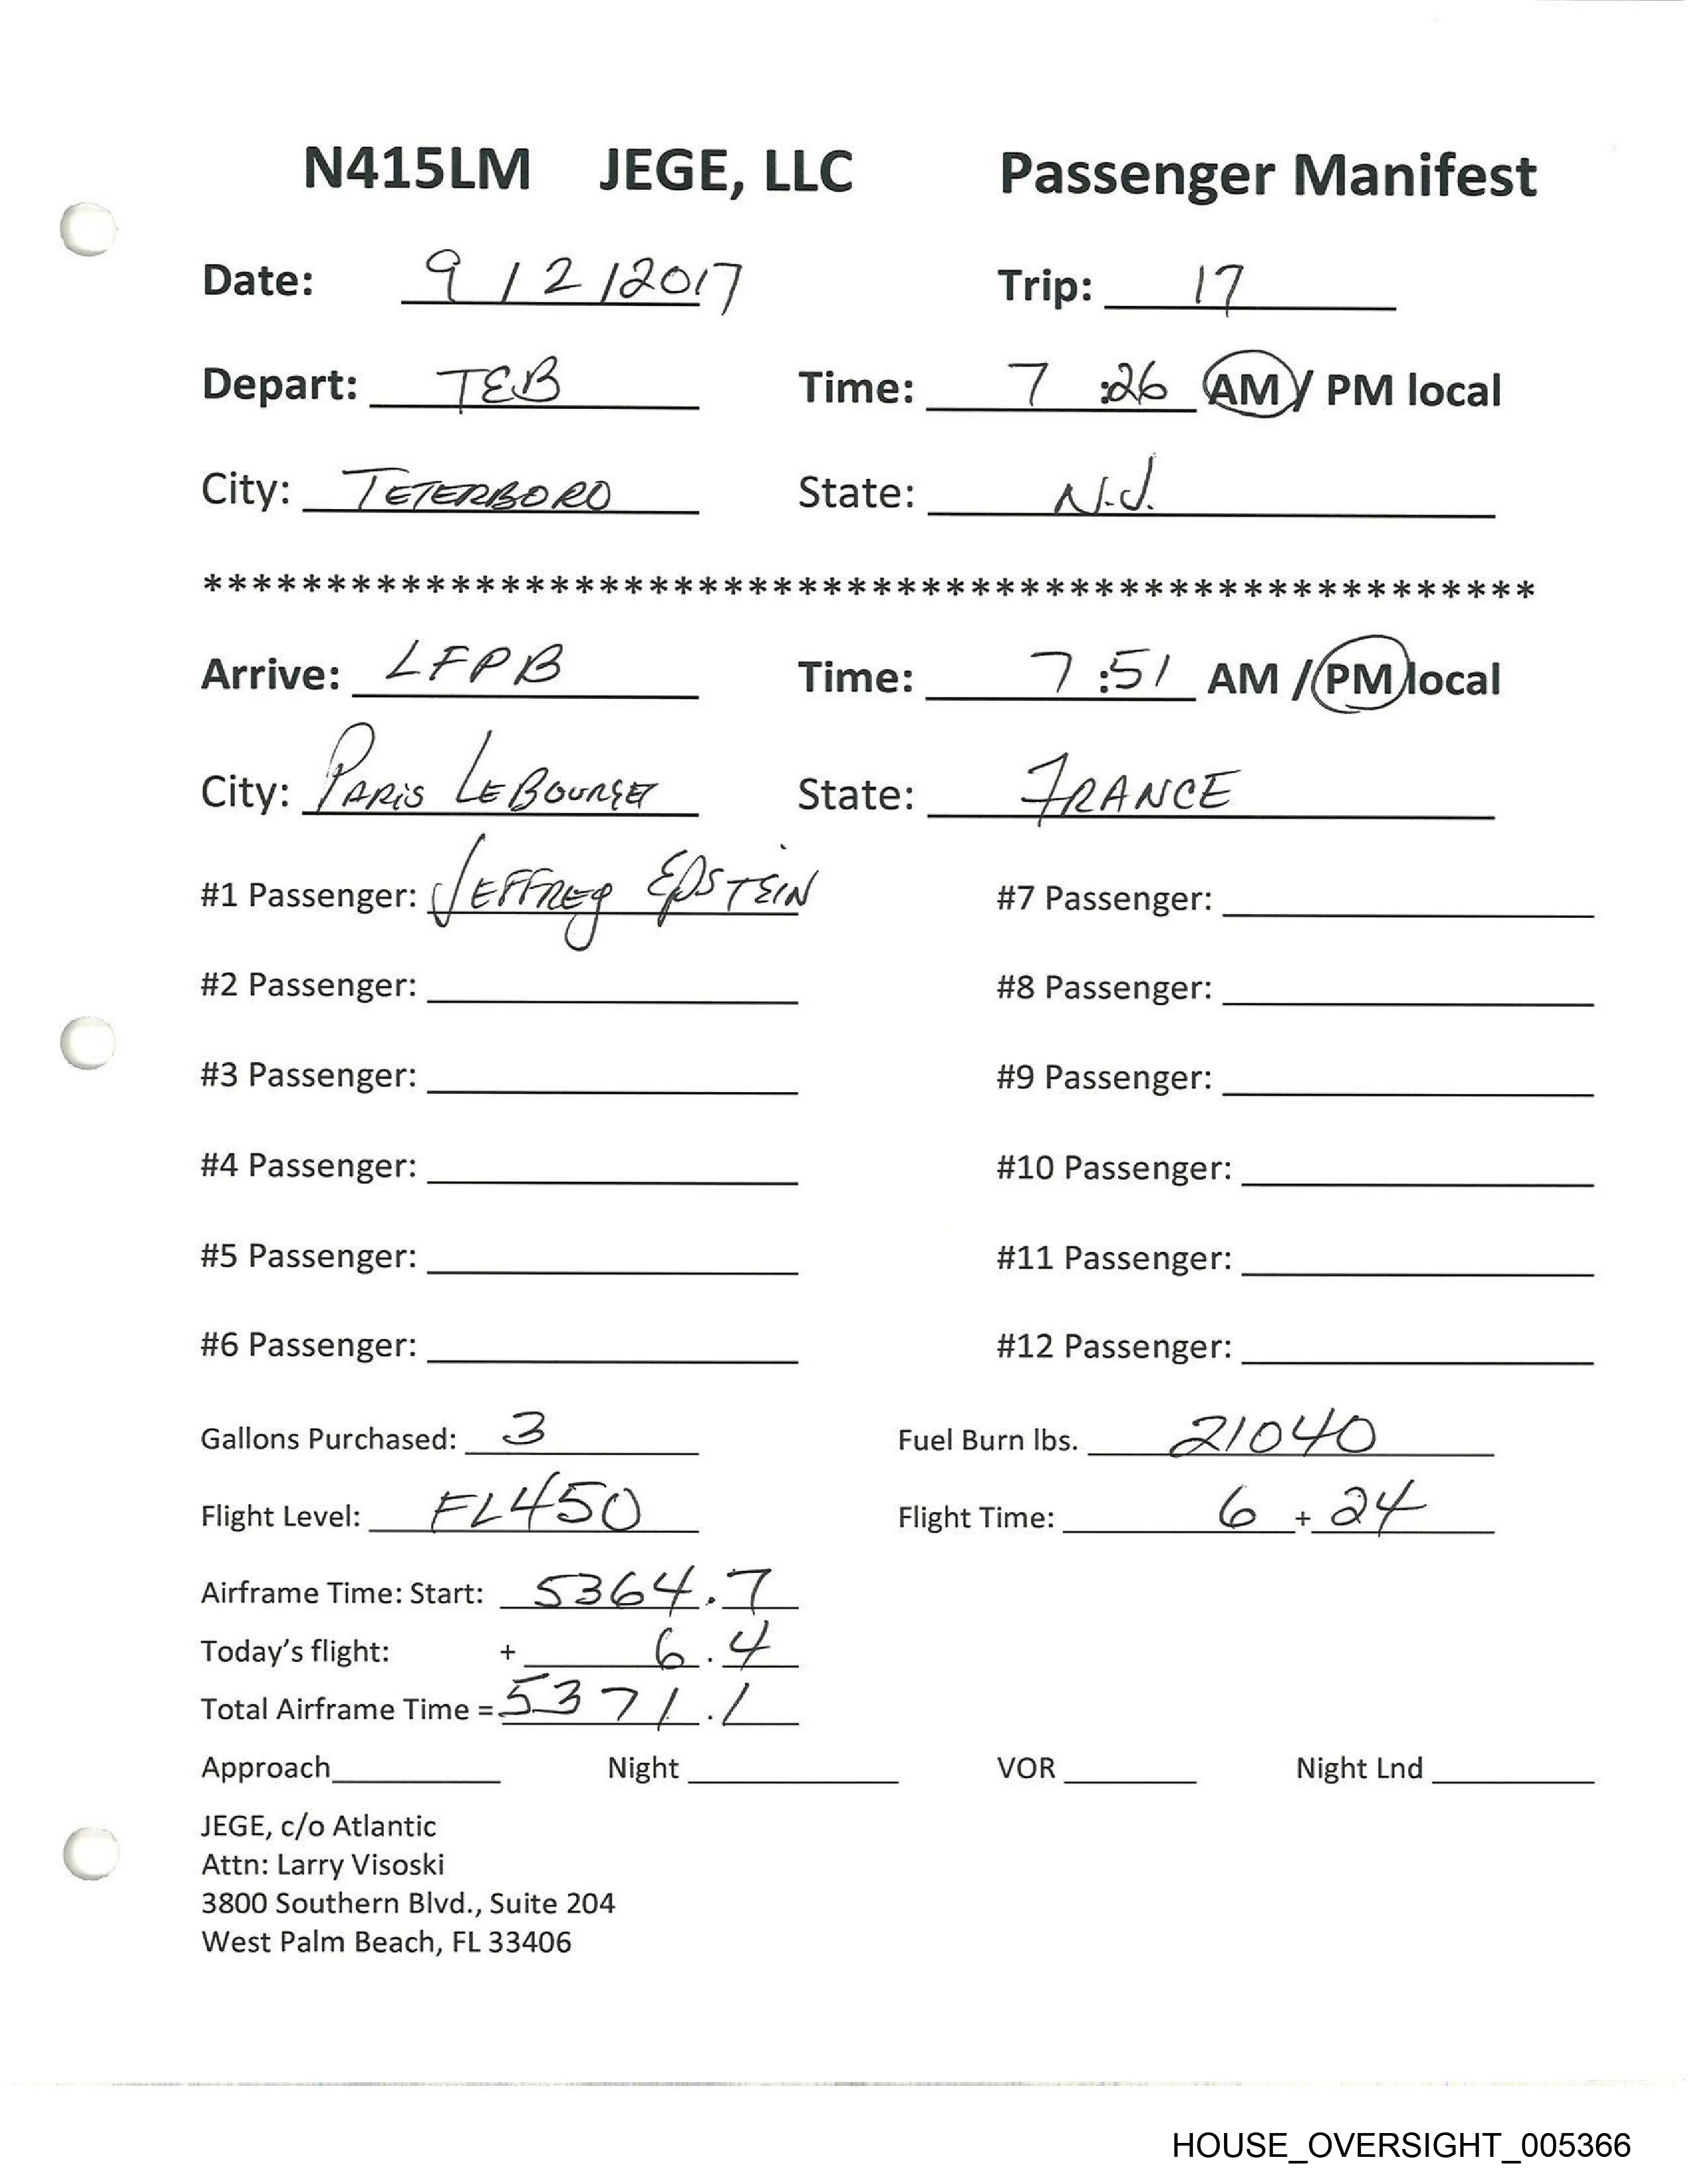 N415LM JEGE, LLC Passenger Manifest
Date: 9 / 2 /2017 Trip: 17
Depart: TEB Time: 7 :26 AM / PM local
City: TETERBORO State: N.J.
******************************************************
Arrive: LFPB Time: 7 :51 AM / PM local
City: PARIS LEBOURGET State: FRANCE
#1 Passenger: JEFFREY EPSTEIN #7 Passenger:
#2 Passenger: #8 Passenger:
#3 Passenger: #9 Passenger:
#4 Passenger: #10 Passenger:
#5 Passenger: #11 Passenger:
#6 Passenger: #12 Passenger:
Gallons Purchased: 3 Fuel Burn lbs. 21040
Flight Level: FL450 Flight Time: 6 + 24
Airframe Time: Start: 5364.7
Today's flight: + 6.4
Total Airframe Time = 5371.1
Approach Night VOR Night Lnd
JEGE, c/o Atlantic
Attn: Larry Visoski
3800 Southern Blvd., Suite 204
West Palm Beach, FL 33406
HOUSE_OVERSIGHT_005366